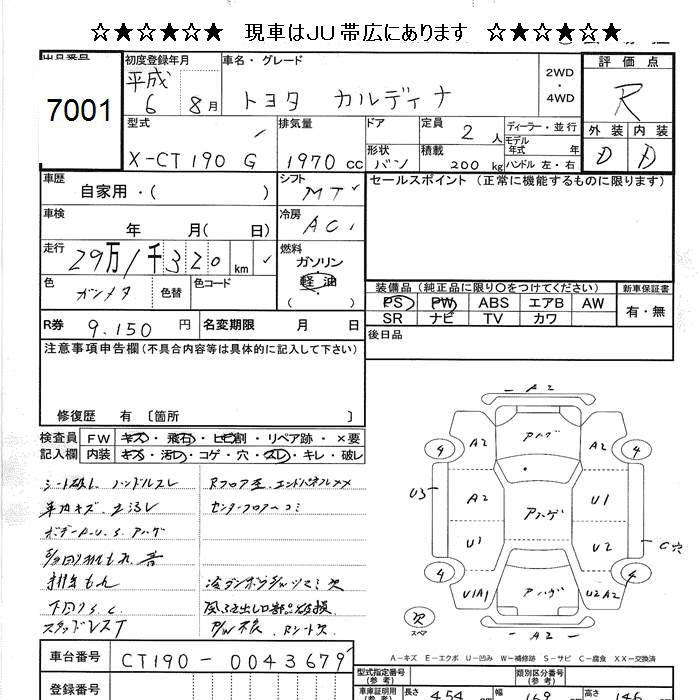 ☆★☆★☆★ 現車はJU帯広にあります ☆★☆★☆★
7001
初度登録年月
平成
6 8月
車名・グレード
トヨタ カルディナ
2WD
・
4WD
評価点
R
外装 内装
D D
型式
X-CT190G
排気量
1970 cc
ドア
形状 バン
定員 2 人
積載 200 kg
ディーラー・並行
モデル
年式 年
ハンドル 左・右
車歴
自家用・( )
シフト
MT
セールスポイント (正常に機能するものに限ります)
車検
年 月( 日)
冷房
AC
走行
29万1千320 km
燃料
ガソリン
軽油
( )
色
ガンメタ
色替
色コード
装備品 (純正品に限り〇をつけてください)
PS PW ABS エアB AW
SR ナビ TV カワ
新車保証書
有・無
R券 9.150 円
名変期限 月 日
後日品
注意事項申告欄 (不具合内容等は具体的に記入して下さい)
修復歴 有 〔箇所 〕
検査員
記入欄
FW キズ・飛石・ヒビ割・リペア跡・×要
内装 キズ・汚れ・コゲ・穴・スレ・キレ・破レ
シート破レ ハンドルスレ
ボデーA.U.S. アハゲ
下回りS.C.
スタッドレスT
Rフロア歪 エンドパネルXX
センターフロアヘコミ
P/W不良
A2
A2 アハゲ A2
4 4
U3 A2 アハゲ U1
U1 U2 C穴
4 4
U1A1 アハゲ U2A2
スペア
A2
A-キズ E-エクボ U-凹み W-補修跡 S-サビ C-腐食 XX-交換済
車台番号 CT190-0043679
登録番号
型式指定番号
(参考)
類別区分番号
(参考)
車庫証明用
(参考)
長さ 454
幅 169
高さ 146